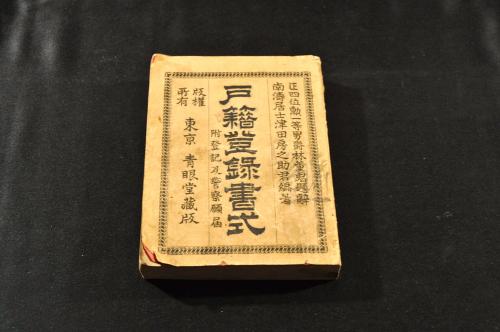 正四位勲一等男爵林董君題辞
南濤居士津田房之助君編著
戸籍登録書式
附登記及警察願届
版権所有
東京 青眼堂蔵版